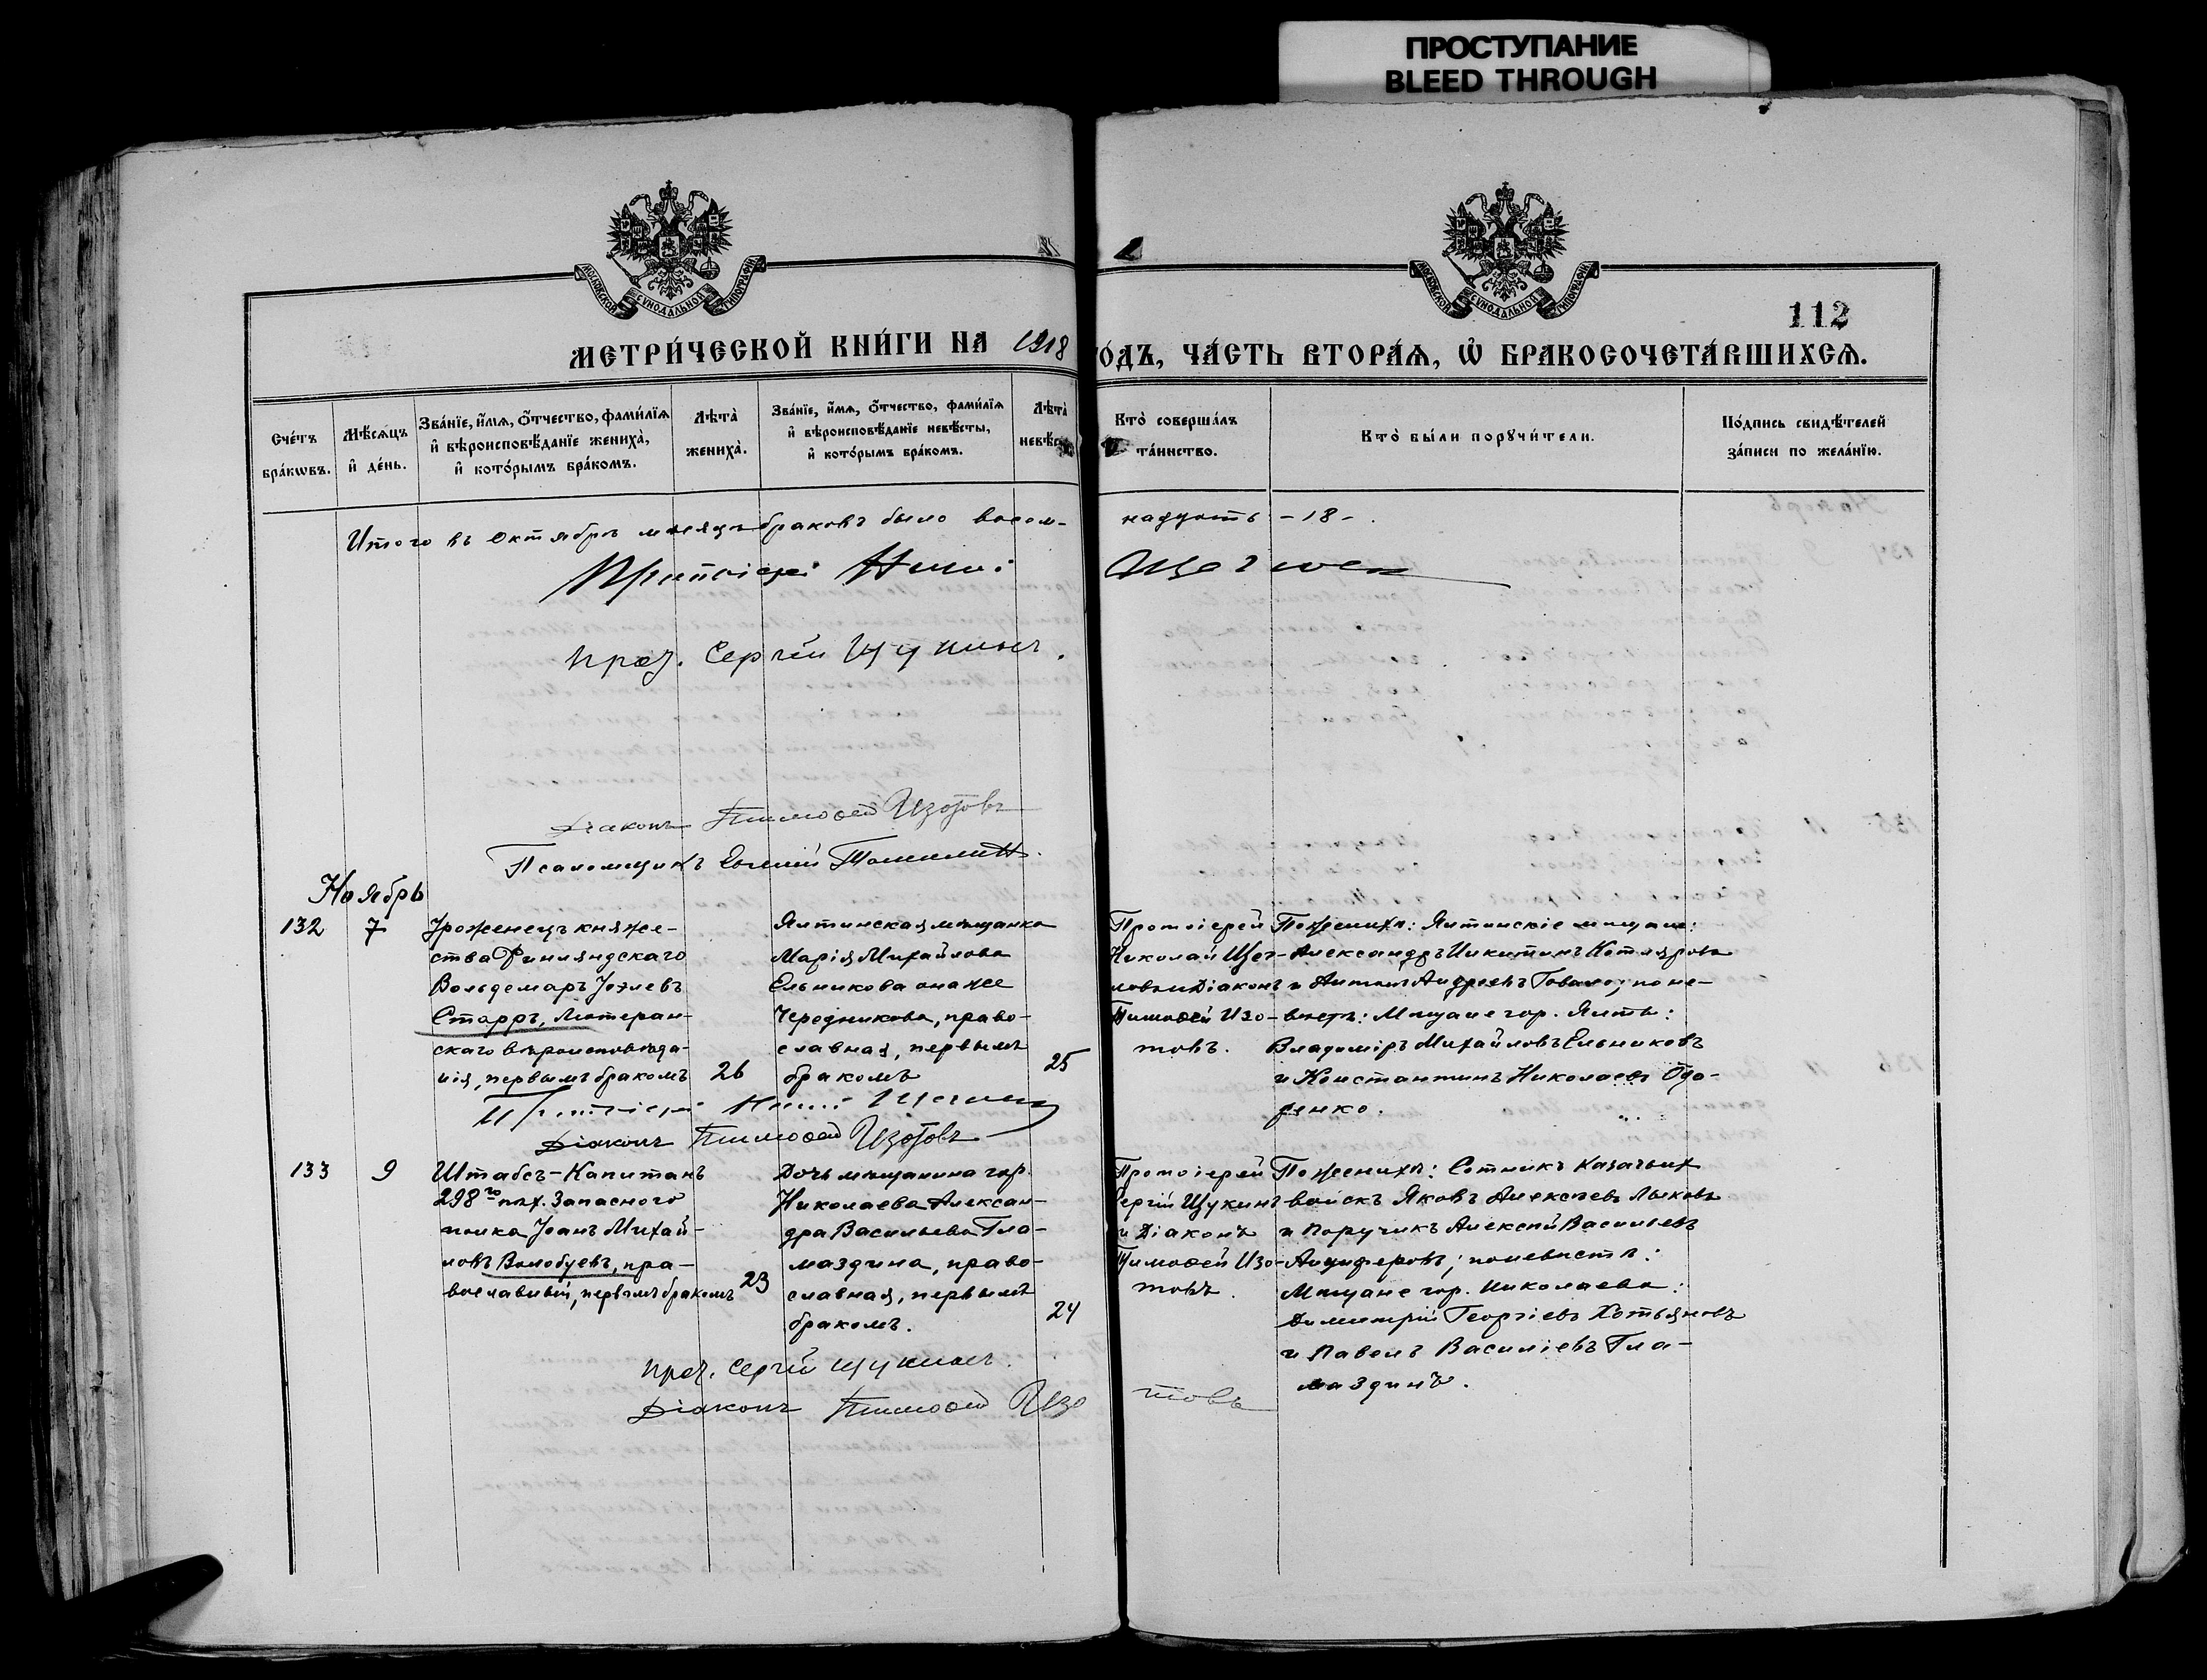 ПРОСТУПАНИЕ
BLEED THROUGH
МОСКОВСКОЙ СѴНОДАЛЬНОЙ ТИПОГРАФІИ
МОСКОВСКОЙ СѴНОДАЛЬНОЙ ТИПОГРАФІИ
112
МЕТРИ́ЧЕСКОЙ КНИ́ГИ НА 1918
ГО́ДЪ, ЧА́СТЬ ВТОРА́Ѧ, Ѡ҆ БРАКОСОЧЕТА́ВШИХСѦ.
Сче́тъ
бра́кѡвъ.
Мѣ́сѧцъ
и҆ де́нь.
Зва́нїе, и҆́мѧ, ѻ҆́тчество, фами́лїѧ
и҆ вѣроисповѣ́данїе жениха̀,
и҆ кото́рымъ бра́комъ.
Лѣта̀
жениха̀.
Зва́нїе, и҆́мѧ, ѻ҆́тчество, фами́лїѧ
и҆ вѣроисповѣ́данїе невѣ́сты,
и҆ кото́рымъ бра́комъ.
Лѣта̀
невѣ́с
Кто̀ соверша́лъ
та́инство.
Кто̀ бы́ли порꙋчи́тели.
По́дпись свидѣ́телей
за́писи по жела́нїю.
Итого въ Октябрѣ мѣсяцѣ браковъ было восем-
надцать - 18 - .
Протоіерей Никол. Щегловъ
Прот. Сергій Щукинъ.
Діаконъ Тимоѳей Изотовъ
Псаломщикъ
Ноябрь
132
7
Уроженецъ княже-
ства Финляндскаго
Вольдемаръ Уэлевъ
Старръ, Лютеран-
скаго вѣроисповѣда-
нія, первымъ бракомъ
26
Ялтинская мѣщанка
Марія Михайлова
Ельникова она же
Чередникова, право-
славная, первымъ
бракомъ
25
Протоіерей
Николай Щег-
ловъ и Діаконъ
Тимоѳей Изо-
товъ.
По женихѣ: Ялтинскіе мѣщане:
Александръ Никитинъ Котляровъ
и Антонъ Андреевъ Говало; по не-
вѣстѣ: Мѣщане гор. Ялты:
Владиміръ Михайловъ Ельниковъ
и Константинъ Николаевъ Ода-
ренко.
Протоіерей Никол. Щегловъ
Діаконъ Тимоѳей Изотовъ
133
9
Штабсъ-Капитанъ
298го пѣх. Запасного
полка Іоанъ Михай-
ловъ Волобуевъ, пра-
вославный, первымъ бракомъ
23
Дочь мѣщанина гор.
Николаева Алексан-
дра Васильева Гла-
маздина, право-
славная, первымъ
бракомъ.
24
Протоіерей
Сергій Щукинъ
и Діаконъ
Тимоѳей Изо-
товъ.
По женихѣ: Сотникъ Казачьих
войскъ Яковъ Алексѣевъ Лыковъ
и Поручикъ Алексѣй Васильевъ
Анциферовъ; по невѣстѣ:
Мѣщане гор. Николаева:
Димитрій Георгіевъ Хотьяновъ
и Павелъ Василіевъ Гла-
маздинъ.
Прот. Сергій Щукинъ.
Діаконъ Тимоѳей Изо
товъ